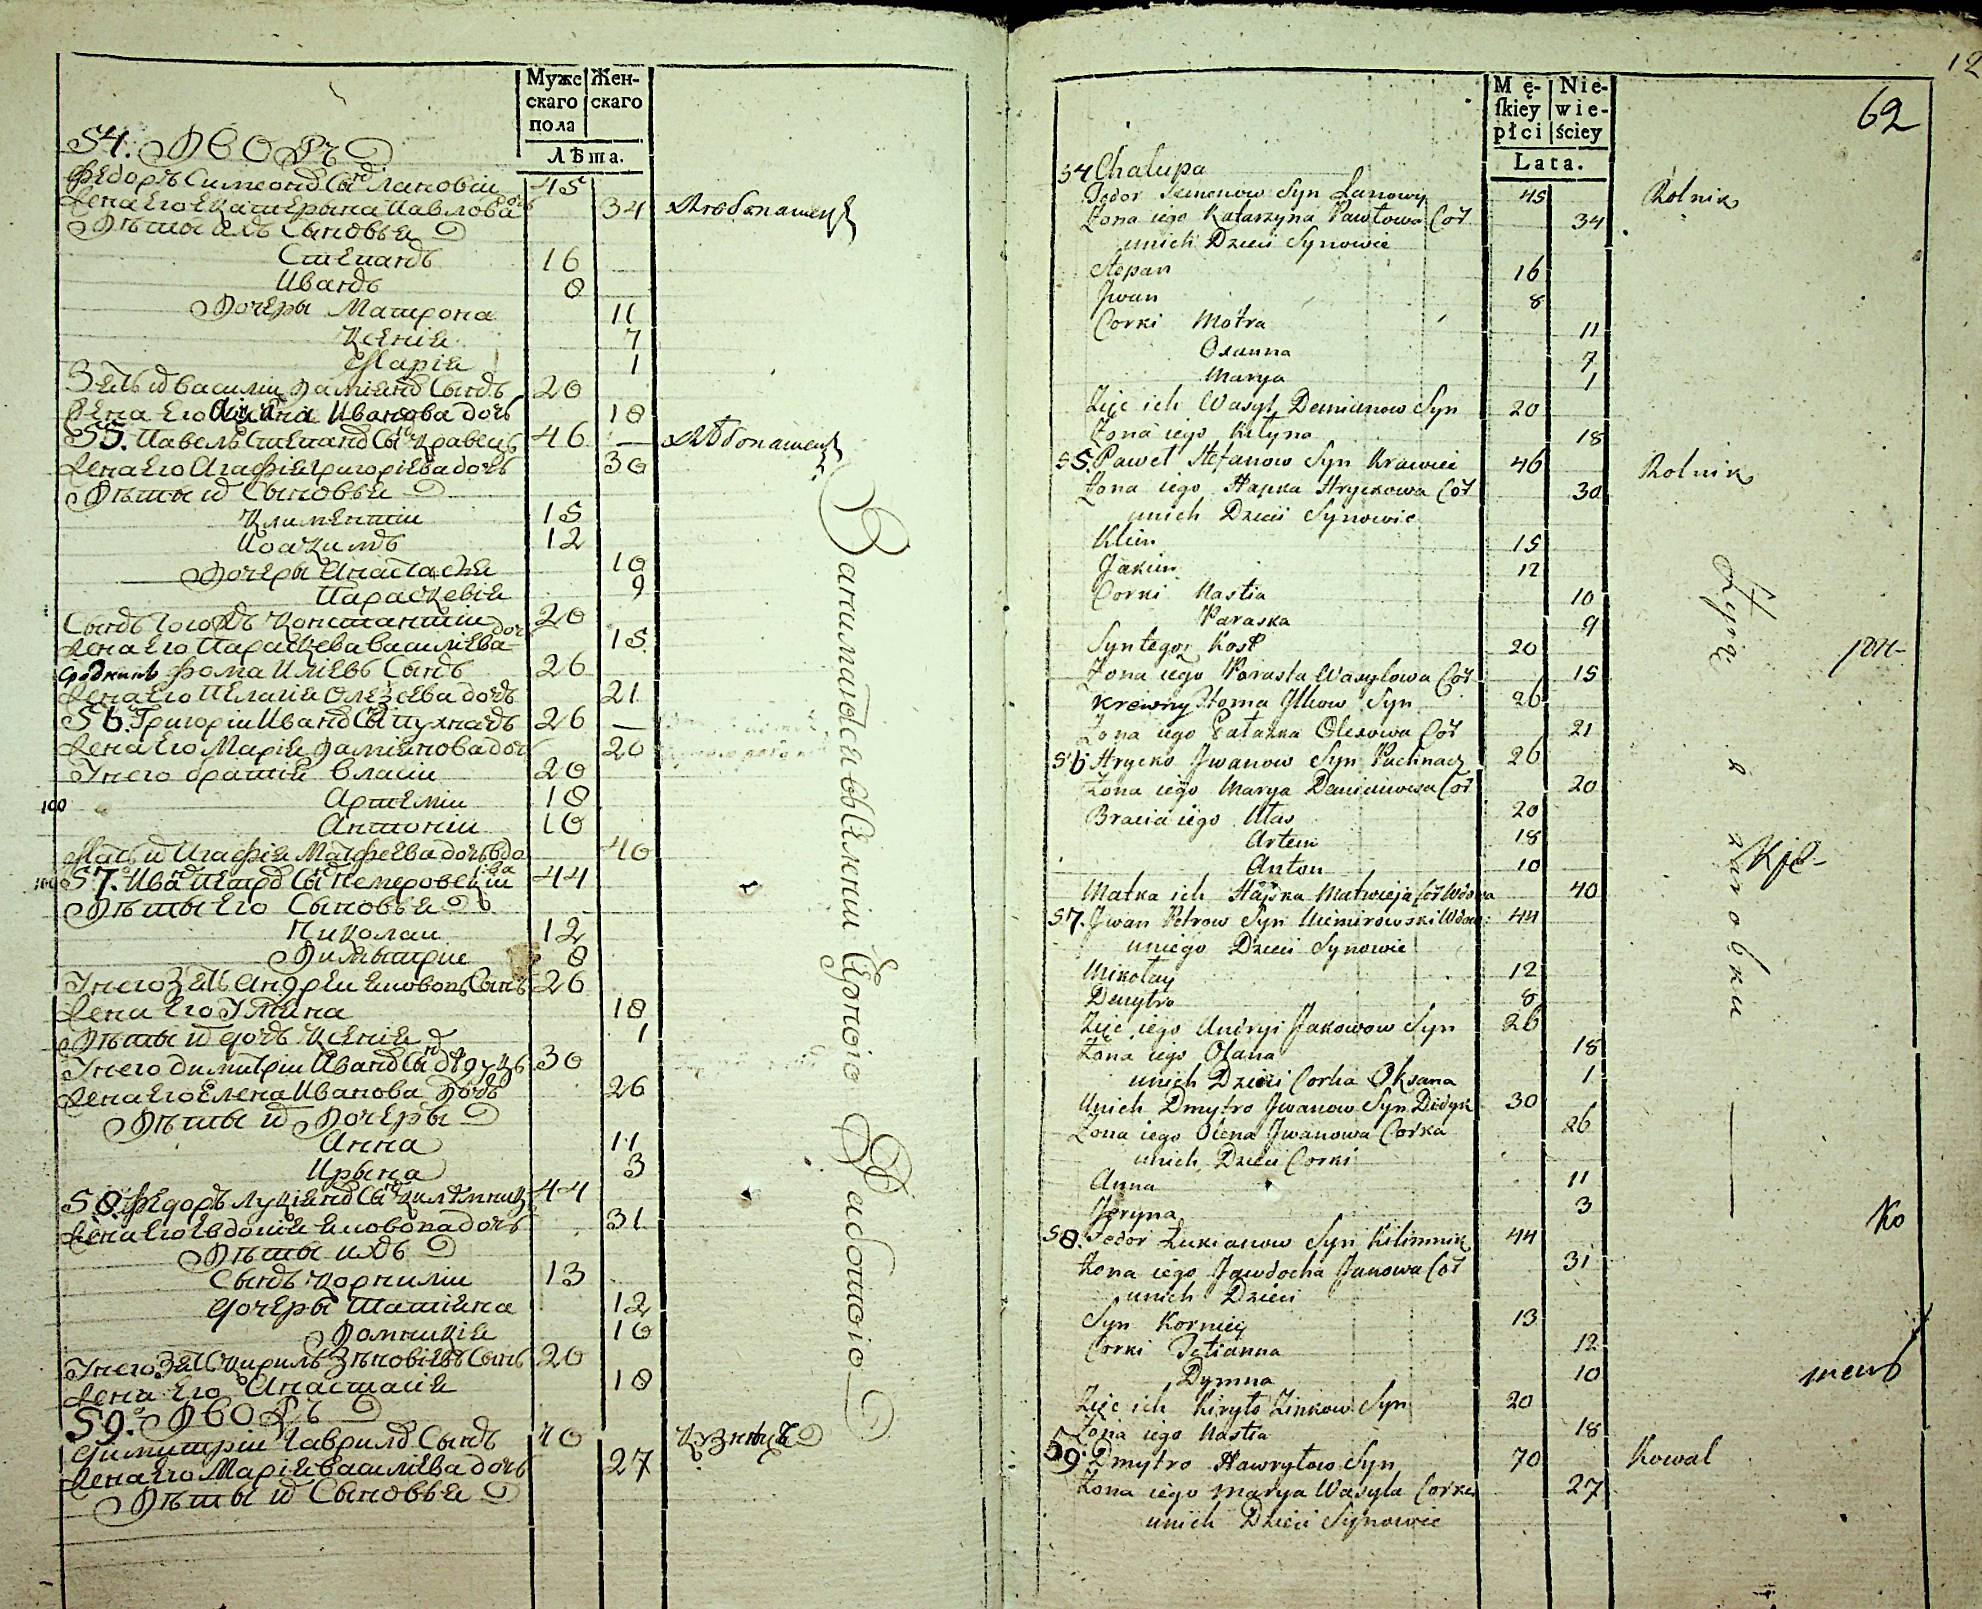 Муже Жен-
скаго скаго
пола
Лѣта.
54. Дворъ
Федоръ Симеонъ Сынъ Лановiи 45
Жена Его Екатерына Павлова дочь 34
Дѣты ихъ Сыновья
Степанъ 16
Иванъ 8
Дочеры Матрона 11
Ксенiя 7
Марiя 1
Зять и Василiи Дамiянъ Сынъ 20
Жена Его Иванова дочь 18
55. Павелъ Степанъ Сынъ Кравецъ 46 —
Жена Его Агафiя Григорiева дочь 30
Дѣты и Сыновья
Климентiи 15
Иоакимъ 12
Дочеры Анастасiя 10
Параскевiя 9
Сынъ Константiи 20
Жена Его Параскева Василiева дочь 15
Сродникъ Фома Илiевъ Сынъ 26
Жена Его Пелагiя Олеѯѣева дочь 21
56. Григорiи Иванъ Сынъ Пухначъ 26 —
Жена Его Марiя Дамiянова доч 20
У него братiя Власiи 20
100
Артемiи 18
Антонiи 10
Мать и Агафiя Матфеева дочь вдова 40
57. Иванъ Петръ Сынъ Немеровскiи 44
Дѣты Его Сыновья
Николаи 12
Димытрие 8
У него Зять Андреи Якововъ Сынъ 26
Жена Его Улiяна 18
Дѣты и дочь Ксенiя 1
У него Димитрiи Иванъ Сынъ Дѣдукъ 30
Жена Его Елена Иванова Дочь 26
Дѣты и Дочеры
Анна 11
Ирына 3
58. Федоръ Лукiянъ Сынъ Килѣмникъ 44
Жена Его Евдокiя Яковова дочь 31
Дѣты ихъ
Сынъ Корнилiи 13
Дочеры Татiяна 12
Домникiя 10
У него Зять Кирилъ Зѣновiевъ Сынъ 20
Жена Его Анастасiя 18
59. Дворъ
Димитрiи Гаврилъ Сынъ 70
Жена Его Марiя Василiева дочь 27
Дѣты и Сыновья
Кузнецъ
12
62
Mę- Nie-
skiey wie-
płci ściey
Lata.
54 Chałupa
Fedor Semenow Syn Lanowy 45 Rolnik
Żona iego Katarzyna Pawłowa Cór 34
unich Dzieci Synowie
Stepan 16
Jwan 8
Corki Motra 11
Oxanna 7
Marya 1
Zięć ich Wasyl Demianow Syn 20
Żona iego Kilyna 18
55. Paweł Stefanow Syn Krawiec 46 Rolnik
Żona iego Hapka Hryckowa Cór 30
unich Dzieci Synowie
Klim 15
Jakim 12
Corki Nastia 10
Paraska 9
Syn tegoż Kost 20
Żona iego Paraska Wasylowa Cór 15
Krewny Homa Jlkow Syn 26
Żona iego Pałażka Olexowa Cór 21
56 Hrycko Jwanow Syn Puchnacz 26
Żona iego Marya Demianowa Cór 20
Bracia iego Ułas 20
Artem 18
Anton 10
Matka ich Hapka Matwieja Cór Wdowa 40
57. Jwan Petrow Syn Niemirowski Wdow: 44
uniego Dzieci Synowie
Mikołay 12
Dmytro 8
Zięć iego Andryi Jakowow Syn 26
Żona iego Olana 18
unich Dzieci Corka Oksana 1
Unich Dmytro Jwanow Syn Didyk 30
Żona iego Olena Jwanowa Corka 26
unich Dzieci Corki
Anna 11
Jeryna 3
58. Fedor Łukianow Syn Kilimnik 44
Żona iego Jawdocha Janowa Cór 31
unich Dzieci
Syn Korniey 13
Corki Tetianna 12
Dymna 10
Zięć ich Kiryło Zinkow Syn 20
Żona iego Nastia 18
59. Dmytro Hawryłow Syn 70 Kowal
Żona iego Marya Wasyla Corka 27
unich Dzieci Synowie
Żyią z zarobku
Ko